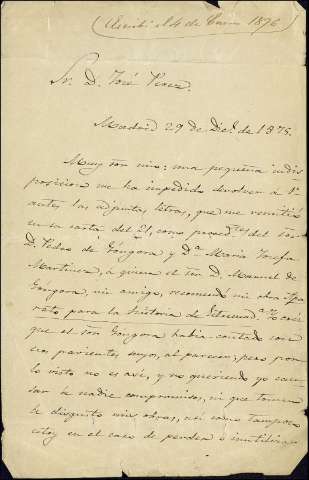 (Recibí el 4 de Enero 1876)
Sr. D. José Perez.
Madrid 29 de Dic.e de 1875.
Muy Sor mio: una pequeña indis-
posicion me ha impedido devolver a V.
antes las adjuntas letras, que me remitió
en su carta del 21, como proced.tes del Sor
D. Pedro de Góngora y D.a Maria Josefa
Martinez, á quien el Sor D. Manuel de
Góngora, mi amigo, recomendó mi obra
rato para la historia de Extremad.a Yo creí
que el Sor Góngora habia contado con
sus parientes suyos, al parecer; pero por
lo visto no es así, y no queriendo yo cau-
sar á nadie compromisos, ni que tomen
á disgusto mis obras, así como tampoco
estoy en el caso de perder ó inutilizar